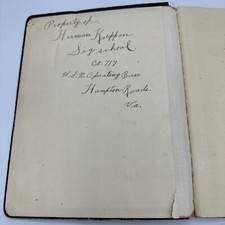 Property of
Herman Kuppen
Sig school
Co. 717
U.S.N. Operating Base
Hampton Roads.
Va.